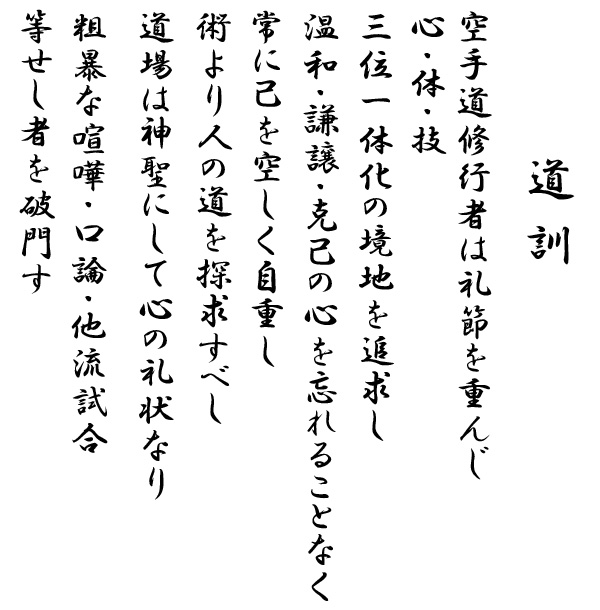 道訓
空手道修行者は礼節を重んじ
心・体・技
三位一体化の境地を追求し
温和・謙譲・克己の心を忘れることなく
常に己を空しく自重し
術より人の道を探求すべし
道場は神聖にして心の礼状なり
粗暴な喧嘩・口論・他流試合
等せし者を破門す